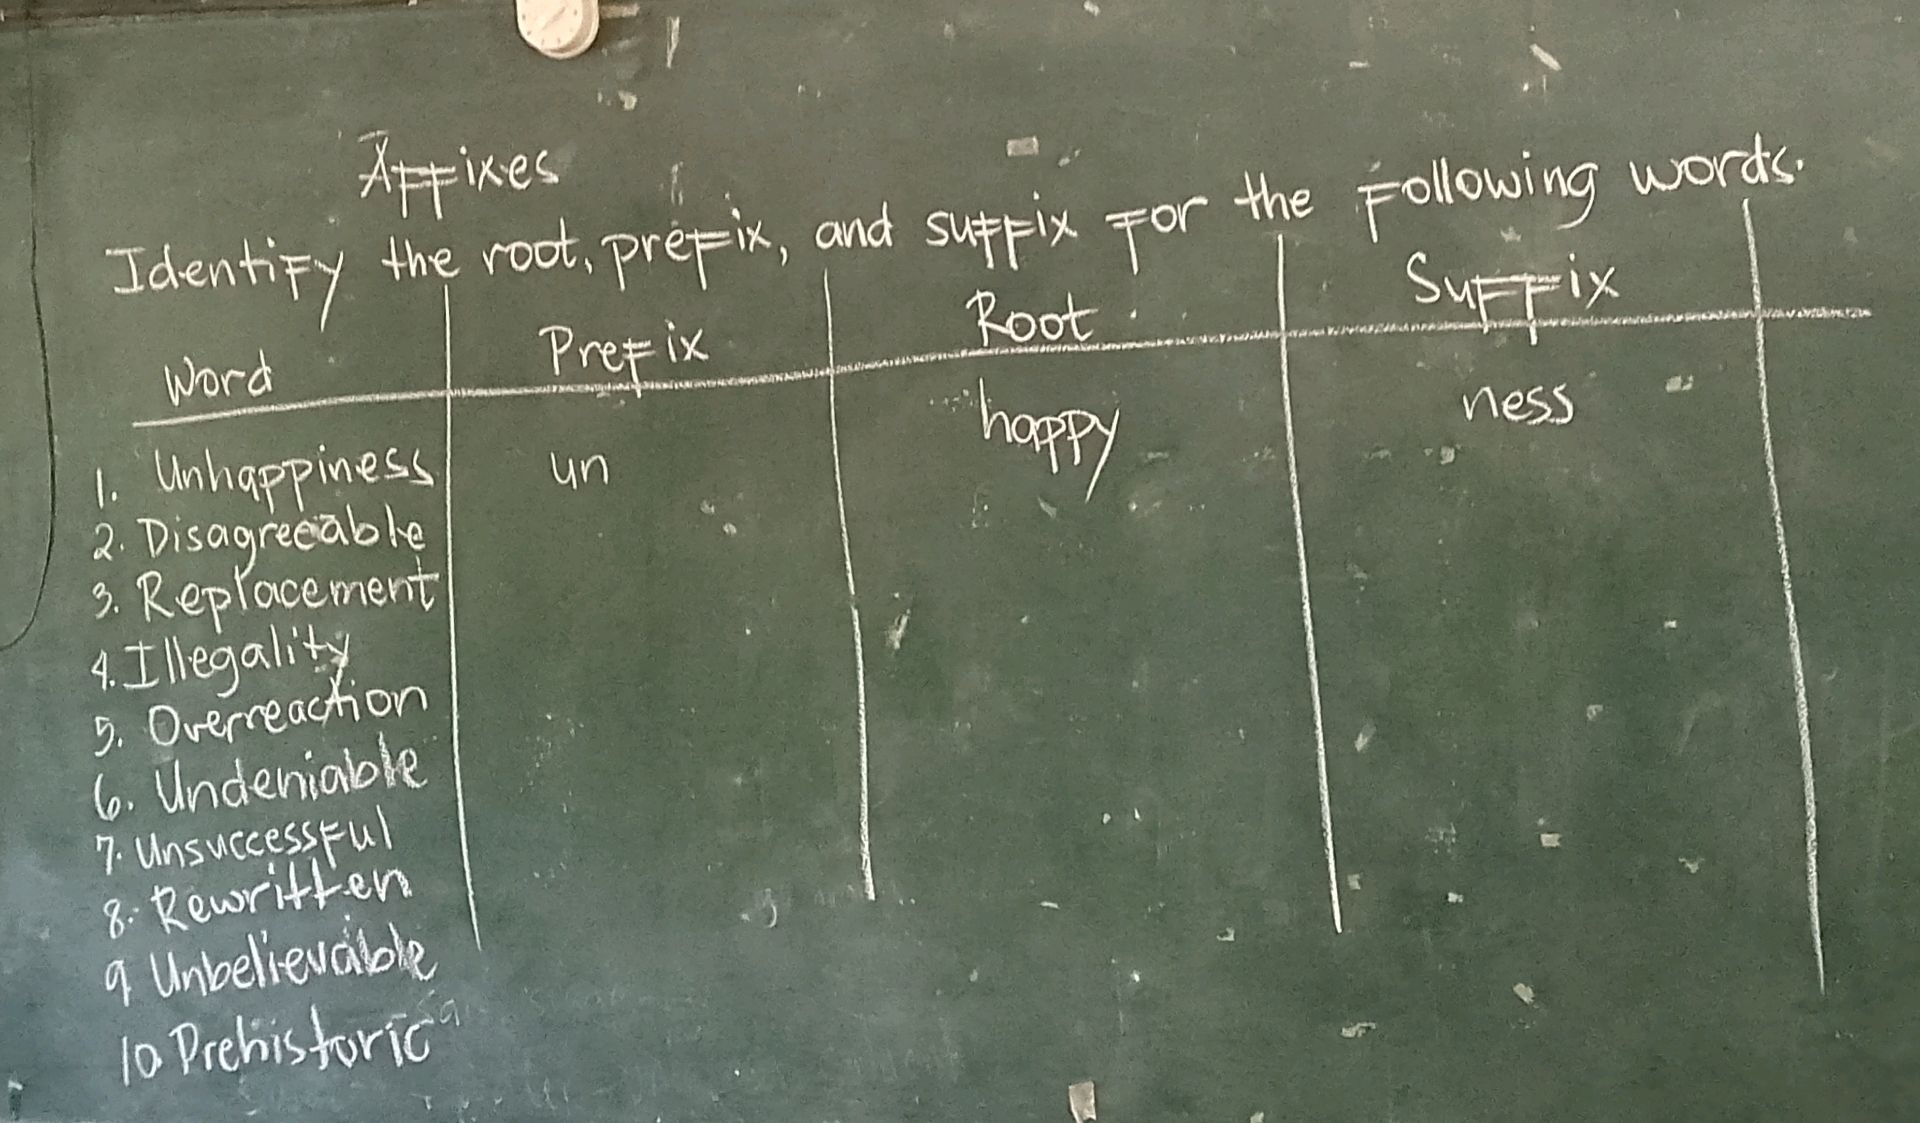 Affixes
Identify the root, prefix, and suffix for the following words.
Word Prefix Root Suffix
1. Unhappiness un happy ness
2. Disagreeable
3. Replacement
4. Illegality
5. Overreaction
6. Undeniable
7. Unsuccessful
8. Rewritten
9 Unbelievable
10 Prehistoric